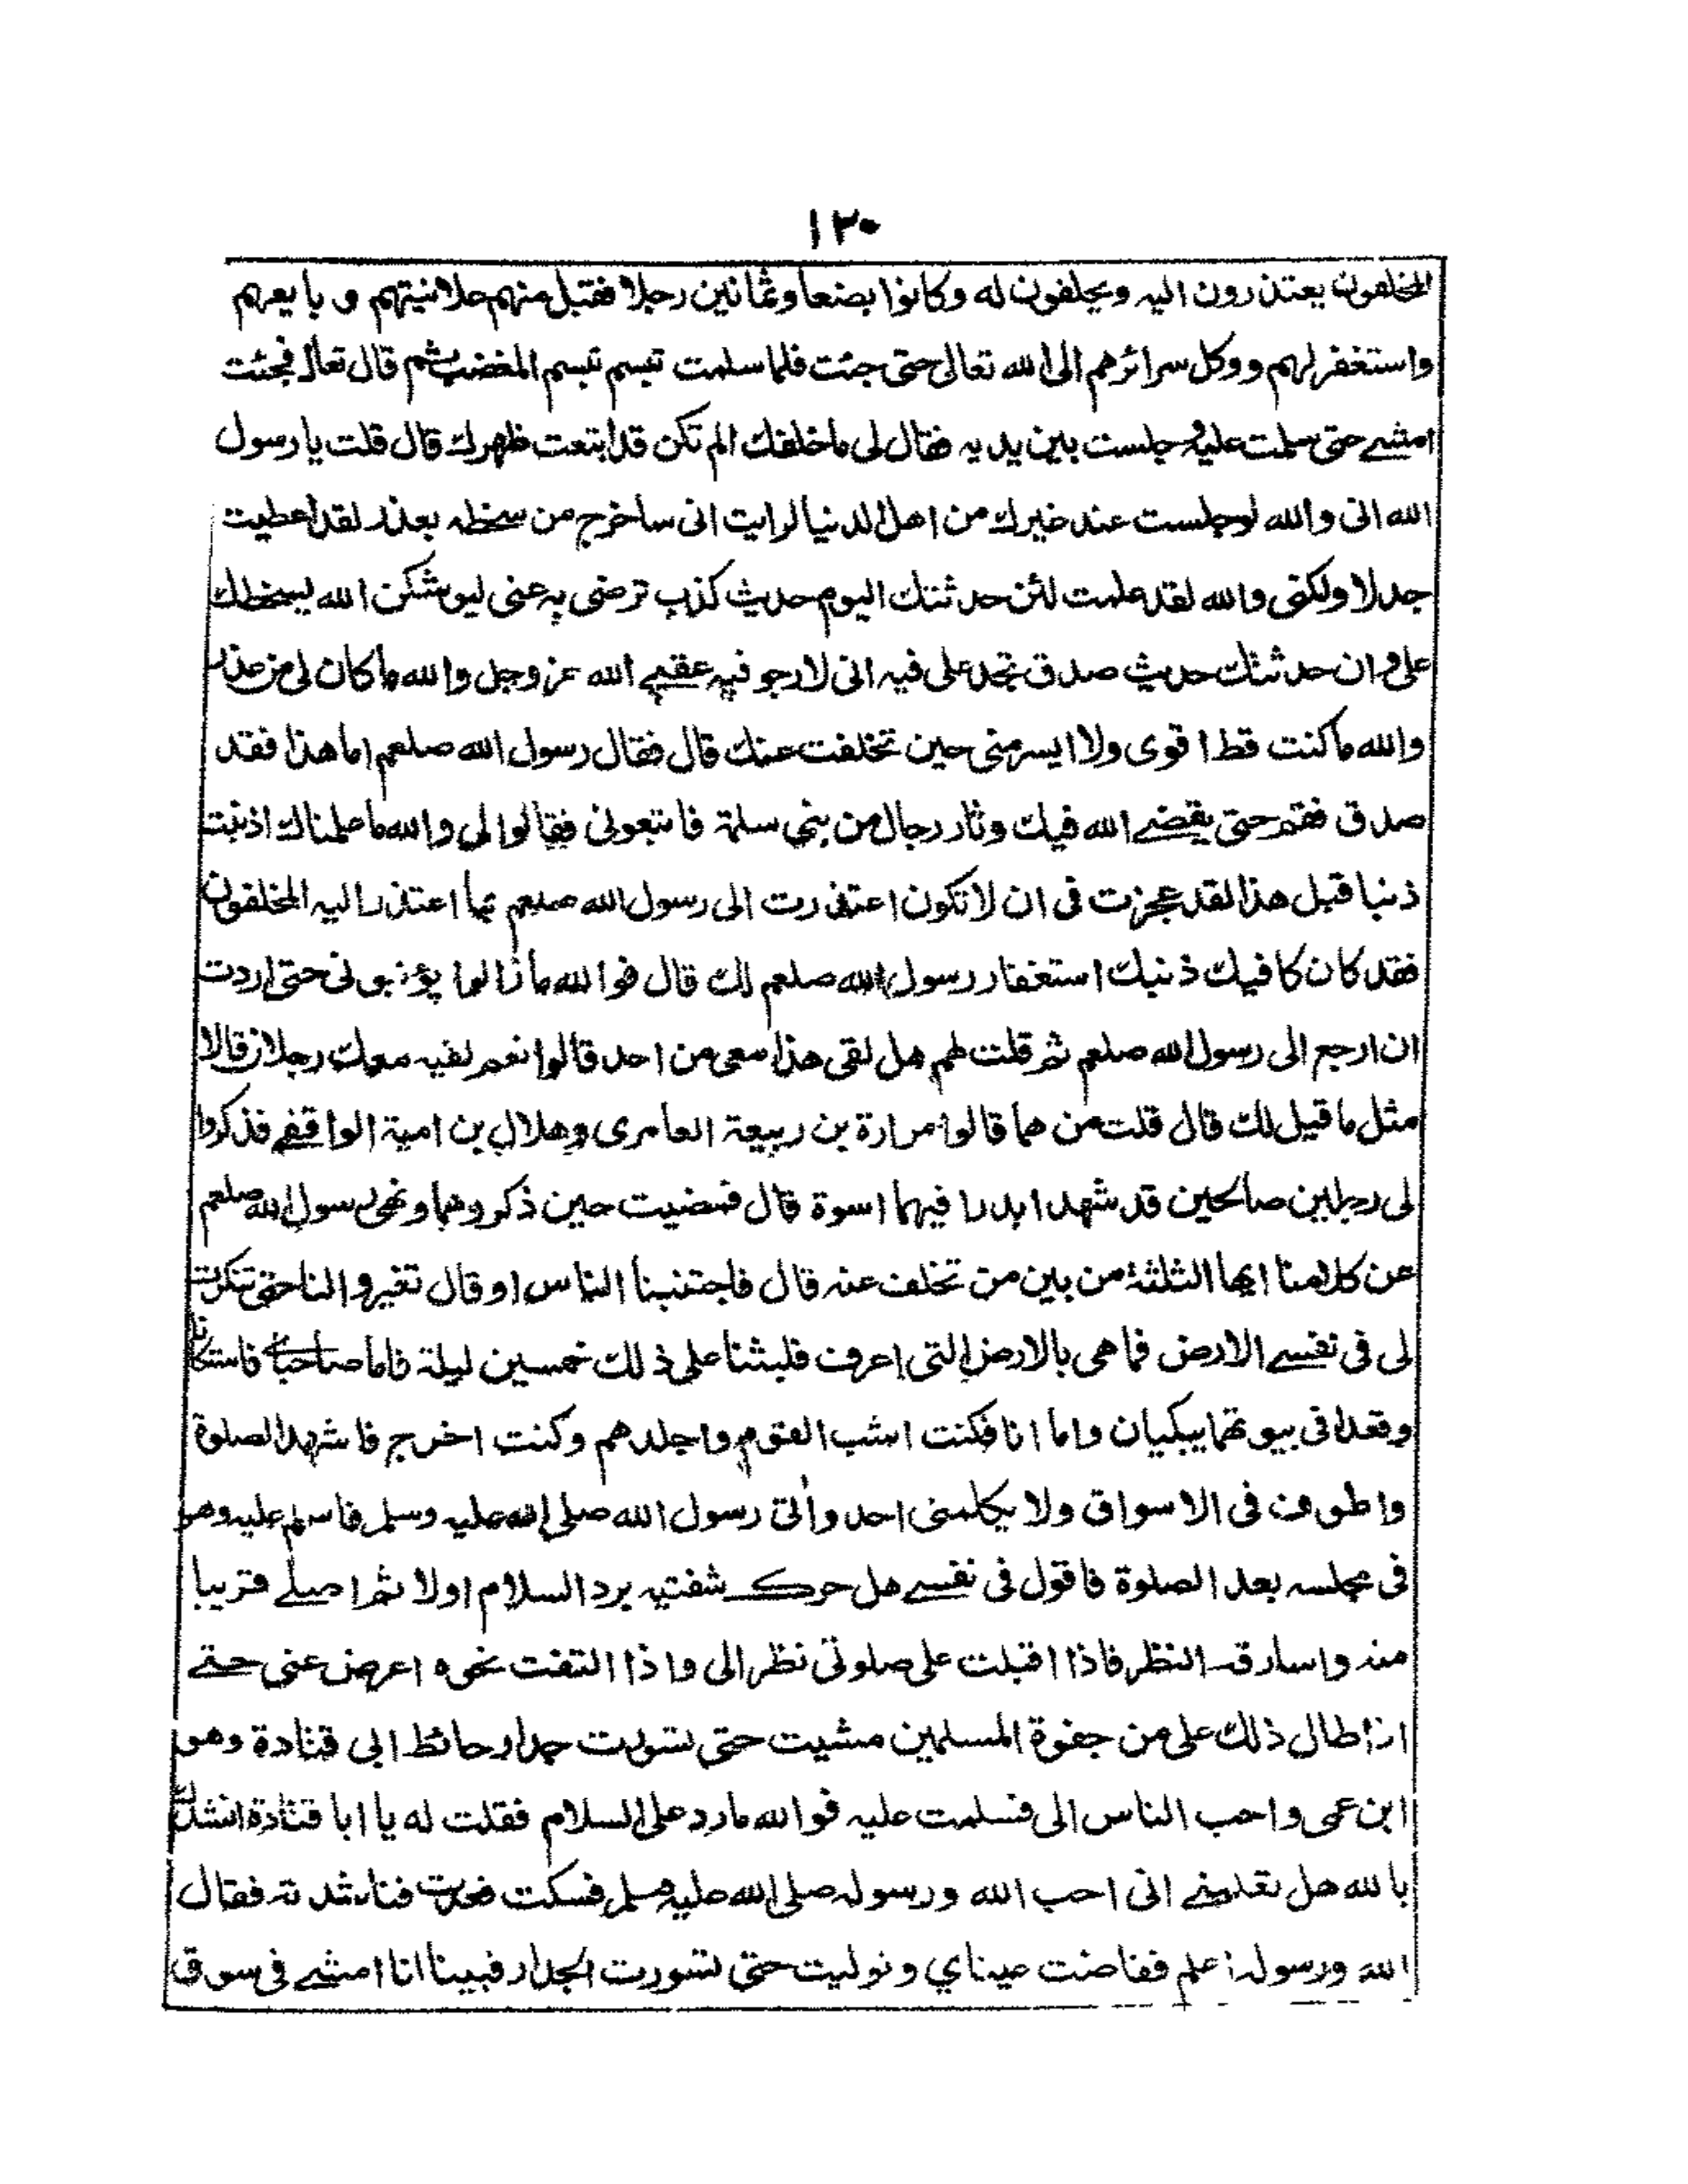 ١٣٠
المخلفون يعتذرون اليه ويحلفون له وكانوا بضعا وثمانين رجلا فقبل منهم علانيتهم و بايعهم
واستغفر لهم ووكل سرائرهم الى الله تعالى حتى جئت فلما سلمت تبسم تبسم المغضب ثم قال تعال فجئت
امشى حتى سلمت عليه وجلست بين يديه فقال لى ماخلفك الم تكن قد ابتعت ظهرك قال قلت يا رسول
الله انى والله لوجلست عند غيرك من اهل الدنيا لرايت انى ساخرج من سخطه بعذر لقد اعطيت
جدلا ولكنى والله لقد علمت لئن حدثتك اليوم حديث كذب ترضى به عنى ليوشكن الله ليسخطك
على وان حدثتك حديث صدق تجد على فيه انى لارجو فيه عقبى الله عز وجل والله ماكان لى من عذر
والله ماكنت قط اقوى ولا ايسر منى حين تخلفت عنك قال فقال رسول الله صلعم اما هذا فقد
صدق فقم حتى يقضى الله فيك وثار رجال من بنى سلمة فاتبعونى فقالوا لى والله ماعلمناك اذنبت
ذنبا قبل هذا لقد عجزت فى ان لاتكون اعتذرت الى رسول الله صلعم بما اعتذر اليه المخلفون
فقد كان كافيك ذنبك استغفار رسول الله صلعم لك قال فوالله مازالوا يؤنبونى حتى اردت
ان ارجع الى رسول الله صلعم ثم قلت لهم هل لقى هذا معى من احد قالوا نعم لقيه معك رجلان قالا
مثل ماقيل لك قال قلت من هما قالوا مرارة بن ربيعة العامرى وهلال بن امية الواقفى فذكروا
لى رجلين صالحين قد شهدا بدرا فيهما اسوة قال فمضيت حين ذكروهما ونهى رسول الله صلعم
عن كلامنا ايها الثلثة من بين من تخلف عنه قال فاجتنبنا الناس او قال تغيروا لنا حتى تنكرت
لى فى نفسى الارض فما هى بالارض التى اعرف فلبثنا على ذلك خمسين ليلة فاما صاحباى فاستكانا
وقعدا فى بيوتهما يبكيان واما انا فكنت اشب القوم واجلدهم وكنت اخرج فاشهد الصلوة
واطوف فى الاسواق ولا يكلمنى احد واٰتى رسول الله صلى الله عليه وسلم فاسلم عليه وهو
فى مجلسه بعد الصلوة فاقول فى نفسى هل حرك شفتيه برد السلام اولا ثم اصلى قريبا
منه واسارق النظر فاذا اقبلت على صلوتى نظر الى واذا التفت نحوه اعرض عنى حتى
اذا طال ذلك على من جفوة المسلمين مشيت حتى تسورت جدار حائط ابى قتادة وهو
ابن عمى واحب الناس الى فسلمت عليه فوالله مارد على السلام فقلت له يا ابا قتادة انشدك
بالله هل تعلمنى انى احب الله ورسوله صلى الله عليه وسلم فسكت فعدت فناشدته فقال
الله ورسوله اعلم ففاضت عيناي وتوليت حتى تسورت الجدار فبينا انا امشى فى سوق